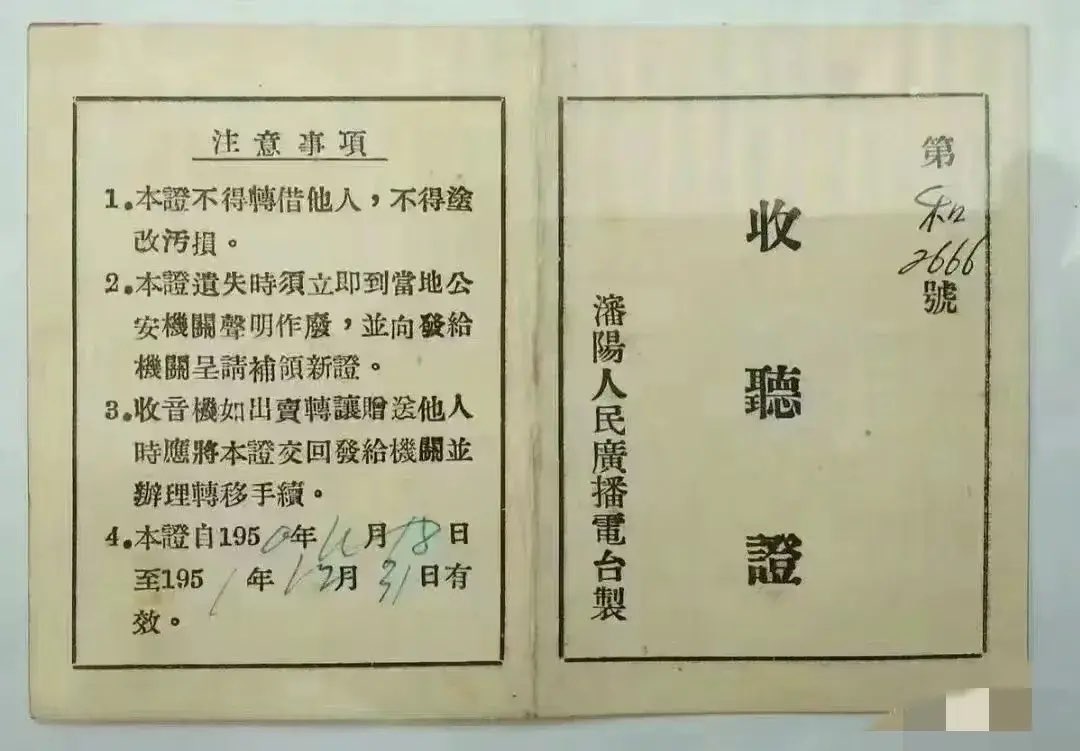 第和2666號
收聽證
瀋陽人民廣播電台製
注意事項
1.本證不得轉借他人，不得塗
改汚損。
2.本證遺失時須立即到當地公
安機關聲明作廢，並向發給
機關呈請補領新證。
3.收音機如出賣轉讓贈送他人
時應將本證交回發給機關並
辦理轉移手續。
4.本證自1950年11月18日
至1951年12月31日有
效。